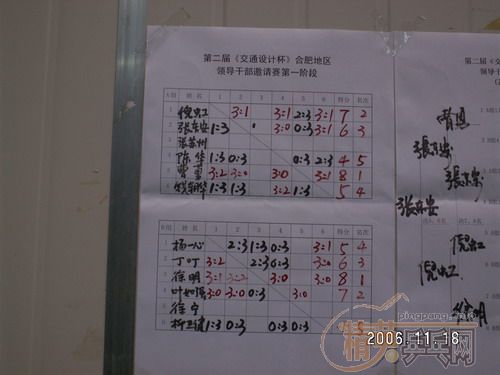 第二届《交通设计杯》合肥地区
领导干部邀请赛第一阶段
A组 姓名 1 2 3 4 5 6 得分 名次
1 倪虹 3:1 3:1 2:3 3:1 7 2
2 张东安 1:3 3:0 0:3 3:1 6 3
3 张苏州
4 陈华 1:3 0:3 0:3 2:3 4 5
5 3:2 3:0 3:0 3:1 8 1
6 1:3 1:3 3:2 1:3 5 4
B组 姓名 1 2 3 4 5 6 得分 名次
1 杨一心 2:3 1:3 0:3 3:1 5 4
2 丁叮 3:2 2:3 0:3 3:0 6 3
3 徐明 3:1 3:2 3:0 3:0 8 1
4 3:0 3:0 0:3 3:0 7 2
5 徐宁
6 1:3 0:3 0:3 0:3
第二届《
领导干
张东安
张东安
张东安
倪虹
倪虹
徐明
pingpang.info
精英乒乓网
2006.11.18